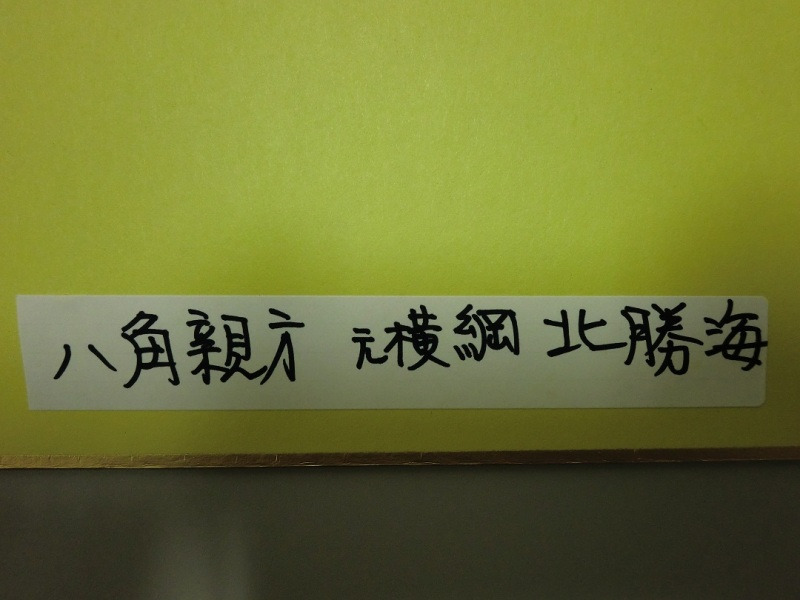 八角親方 元横綱 北勝海